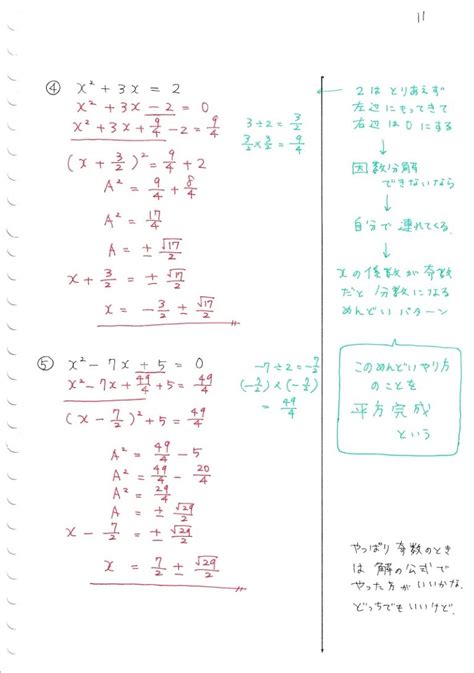 11
④ x² + 3x = 2
x² + 3x − 2 = 0
x² + 3x + 9/4 − 2 = 9/4
3÷2 = 3/2
3/2 × 3/2 = 9/4
(x + 3/2)² = 9/4 + 2
A² = 9/4 + 8/4
A² = 17/4
A = ± √17/2
x + 3/2 = ± √17/2
x = −3/2 ± √17/2
← 2はとりあえず
左辺にもってきて
右辺は0にする
↓
因数分解
できないなら
↓
自分で連れてくる
↓
xの係数が奇数
だと分数になる
めんどいパターン
このめんどいやり方
のことを
平方完成
という
⑤ x² − 7x + 5 = 0
x² − 7x + 49/4 + 5 = 49/4
−7÷2 = −7/2
(−7/2) × (−7/2)
= 49/4
(x − 7/2)² + 5 = 49/4
A² = 49/4 − 5
A² = 49/4 − 20/4
A² = 29/4
A = ± √29/2
x − 7/2 = ± √29/2
x = 7/2 ± √29/2
やっぱり奇数のとき
は解の公式で
やった方がいいかな.
どっちでもいいけど.